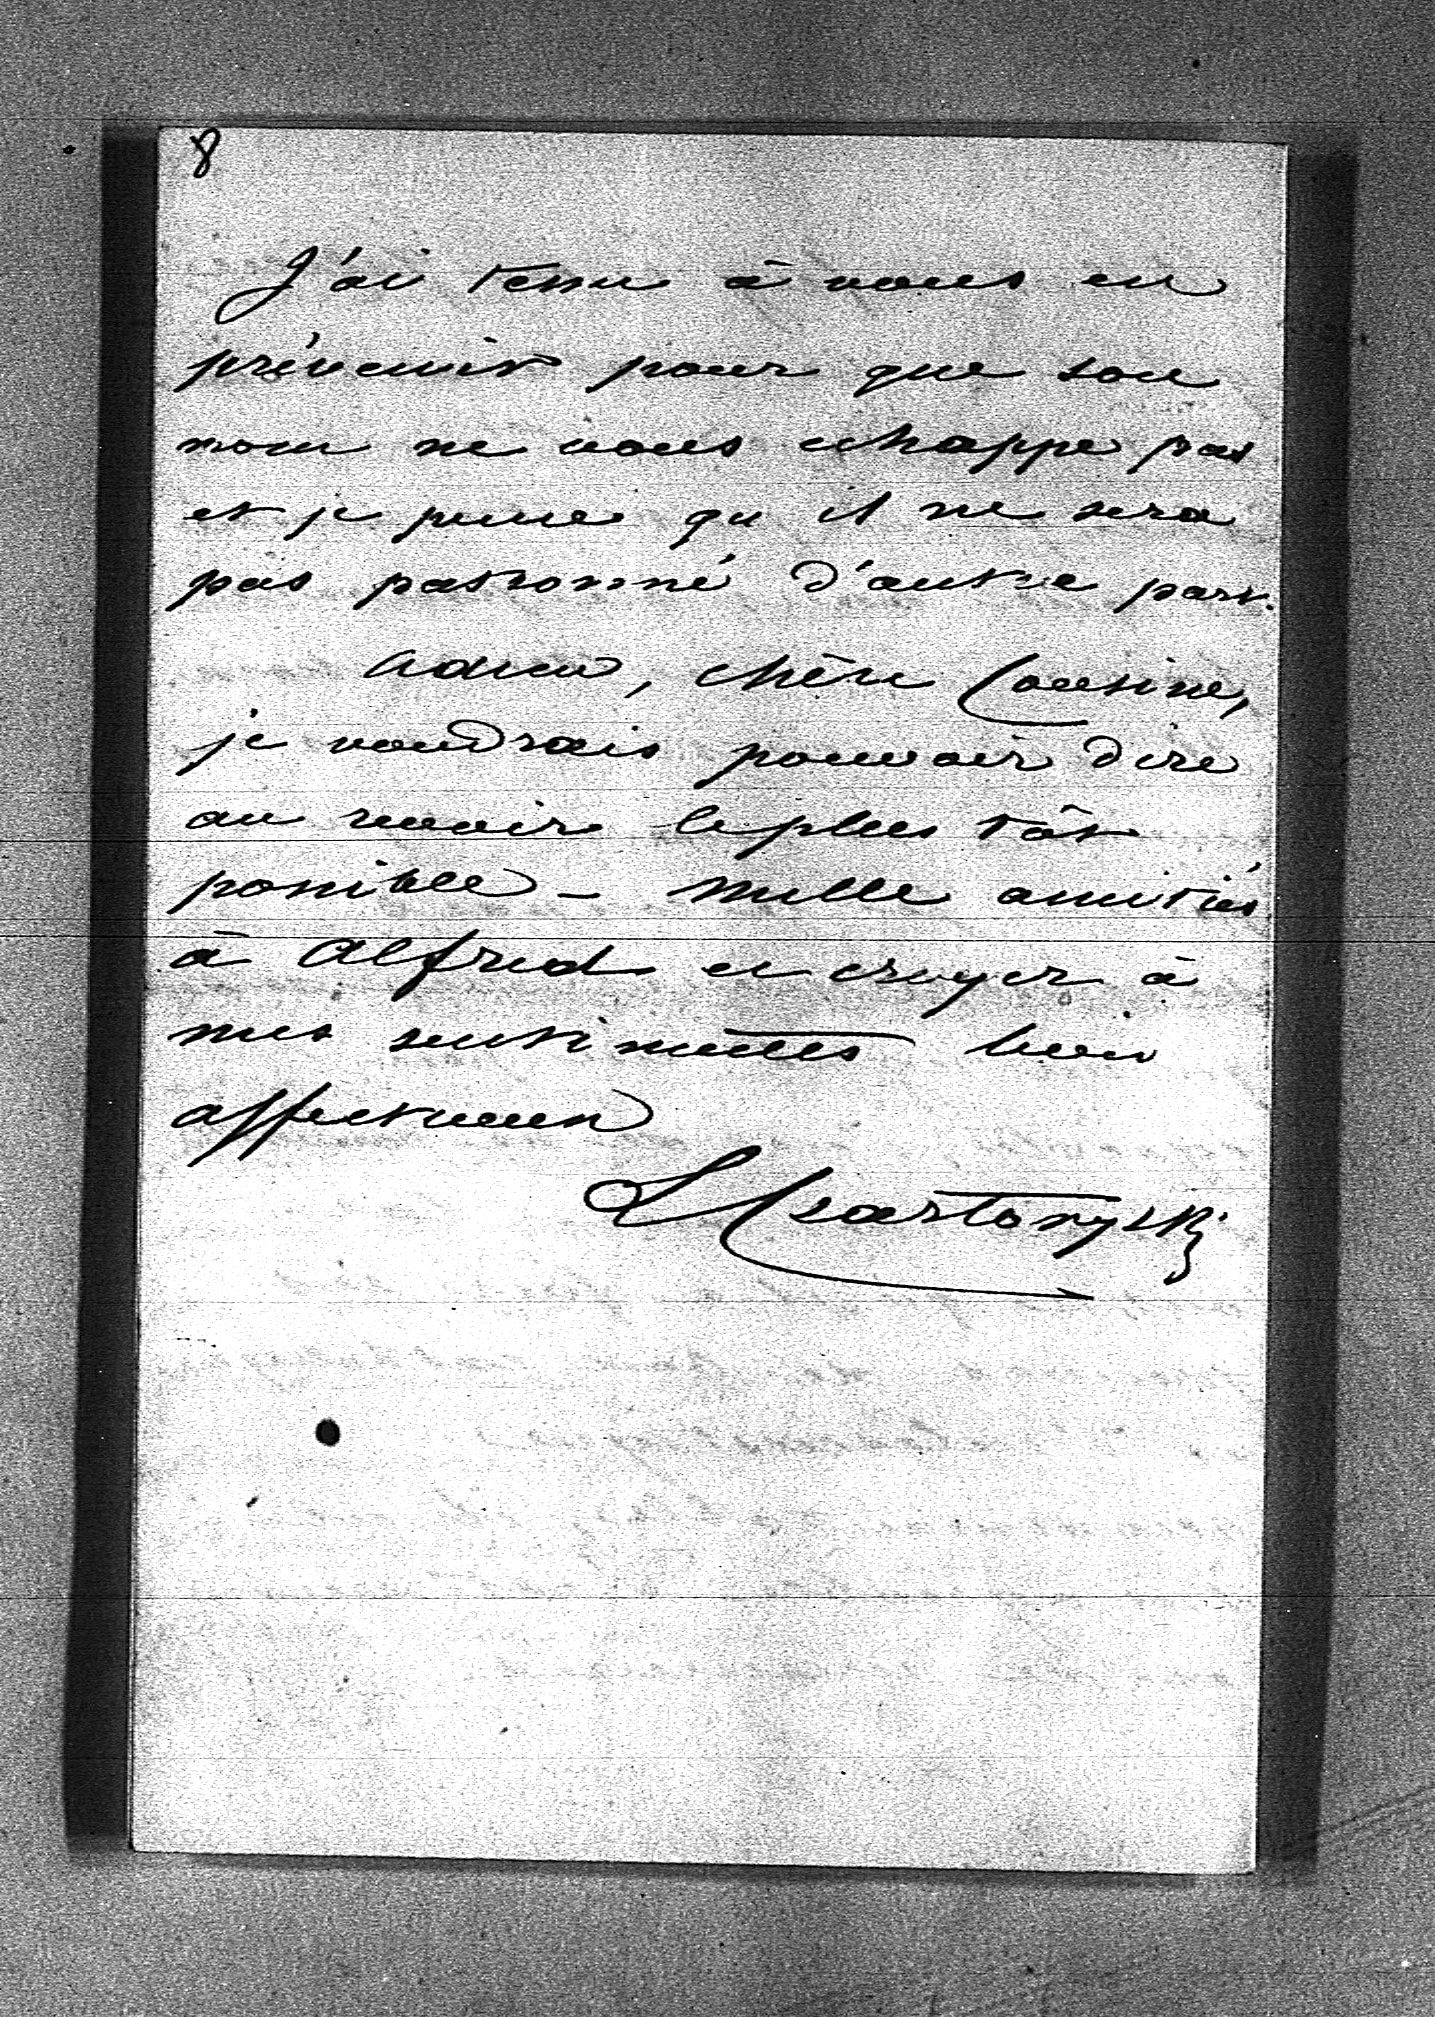 8
J'ai tenu à vous en
prévenir pour que son
nom ne vous echappe pas
et je pense qu'il ne sera
pas patronné d'autre part.
Adieu, chère Cousine,
je voudrais pouvoir dire
au revoir le plus tôt
possible - Mille amitiés
à Alfred et croyez à
mes sentiments bien
affectueux
L Czartoryski